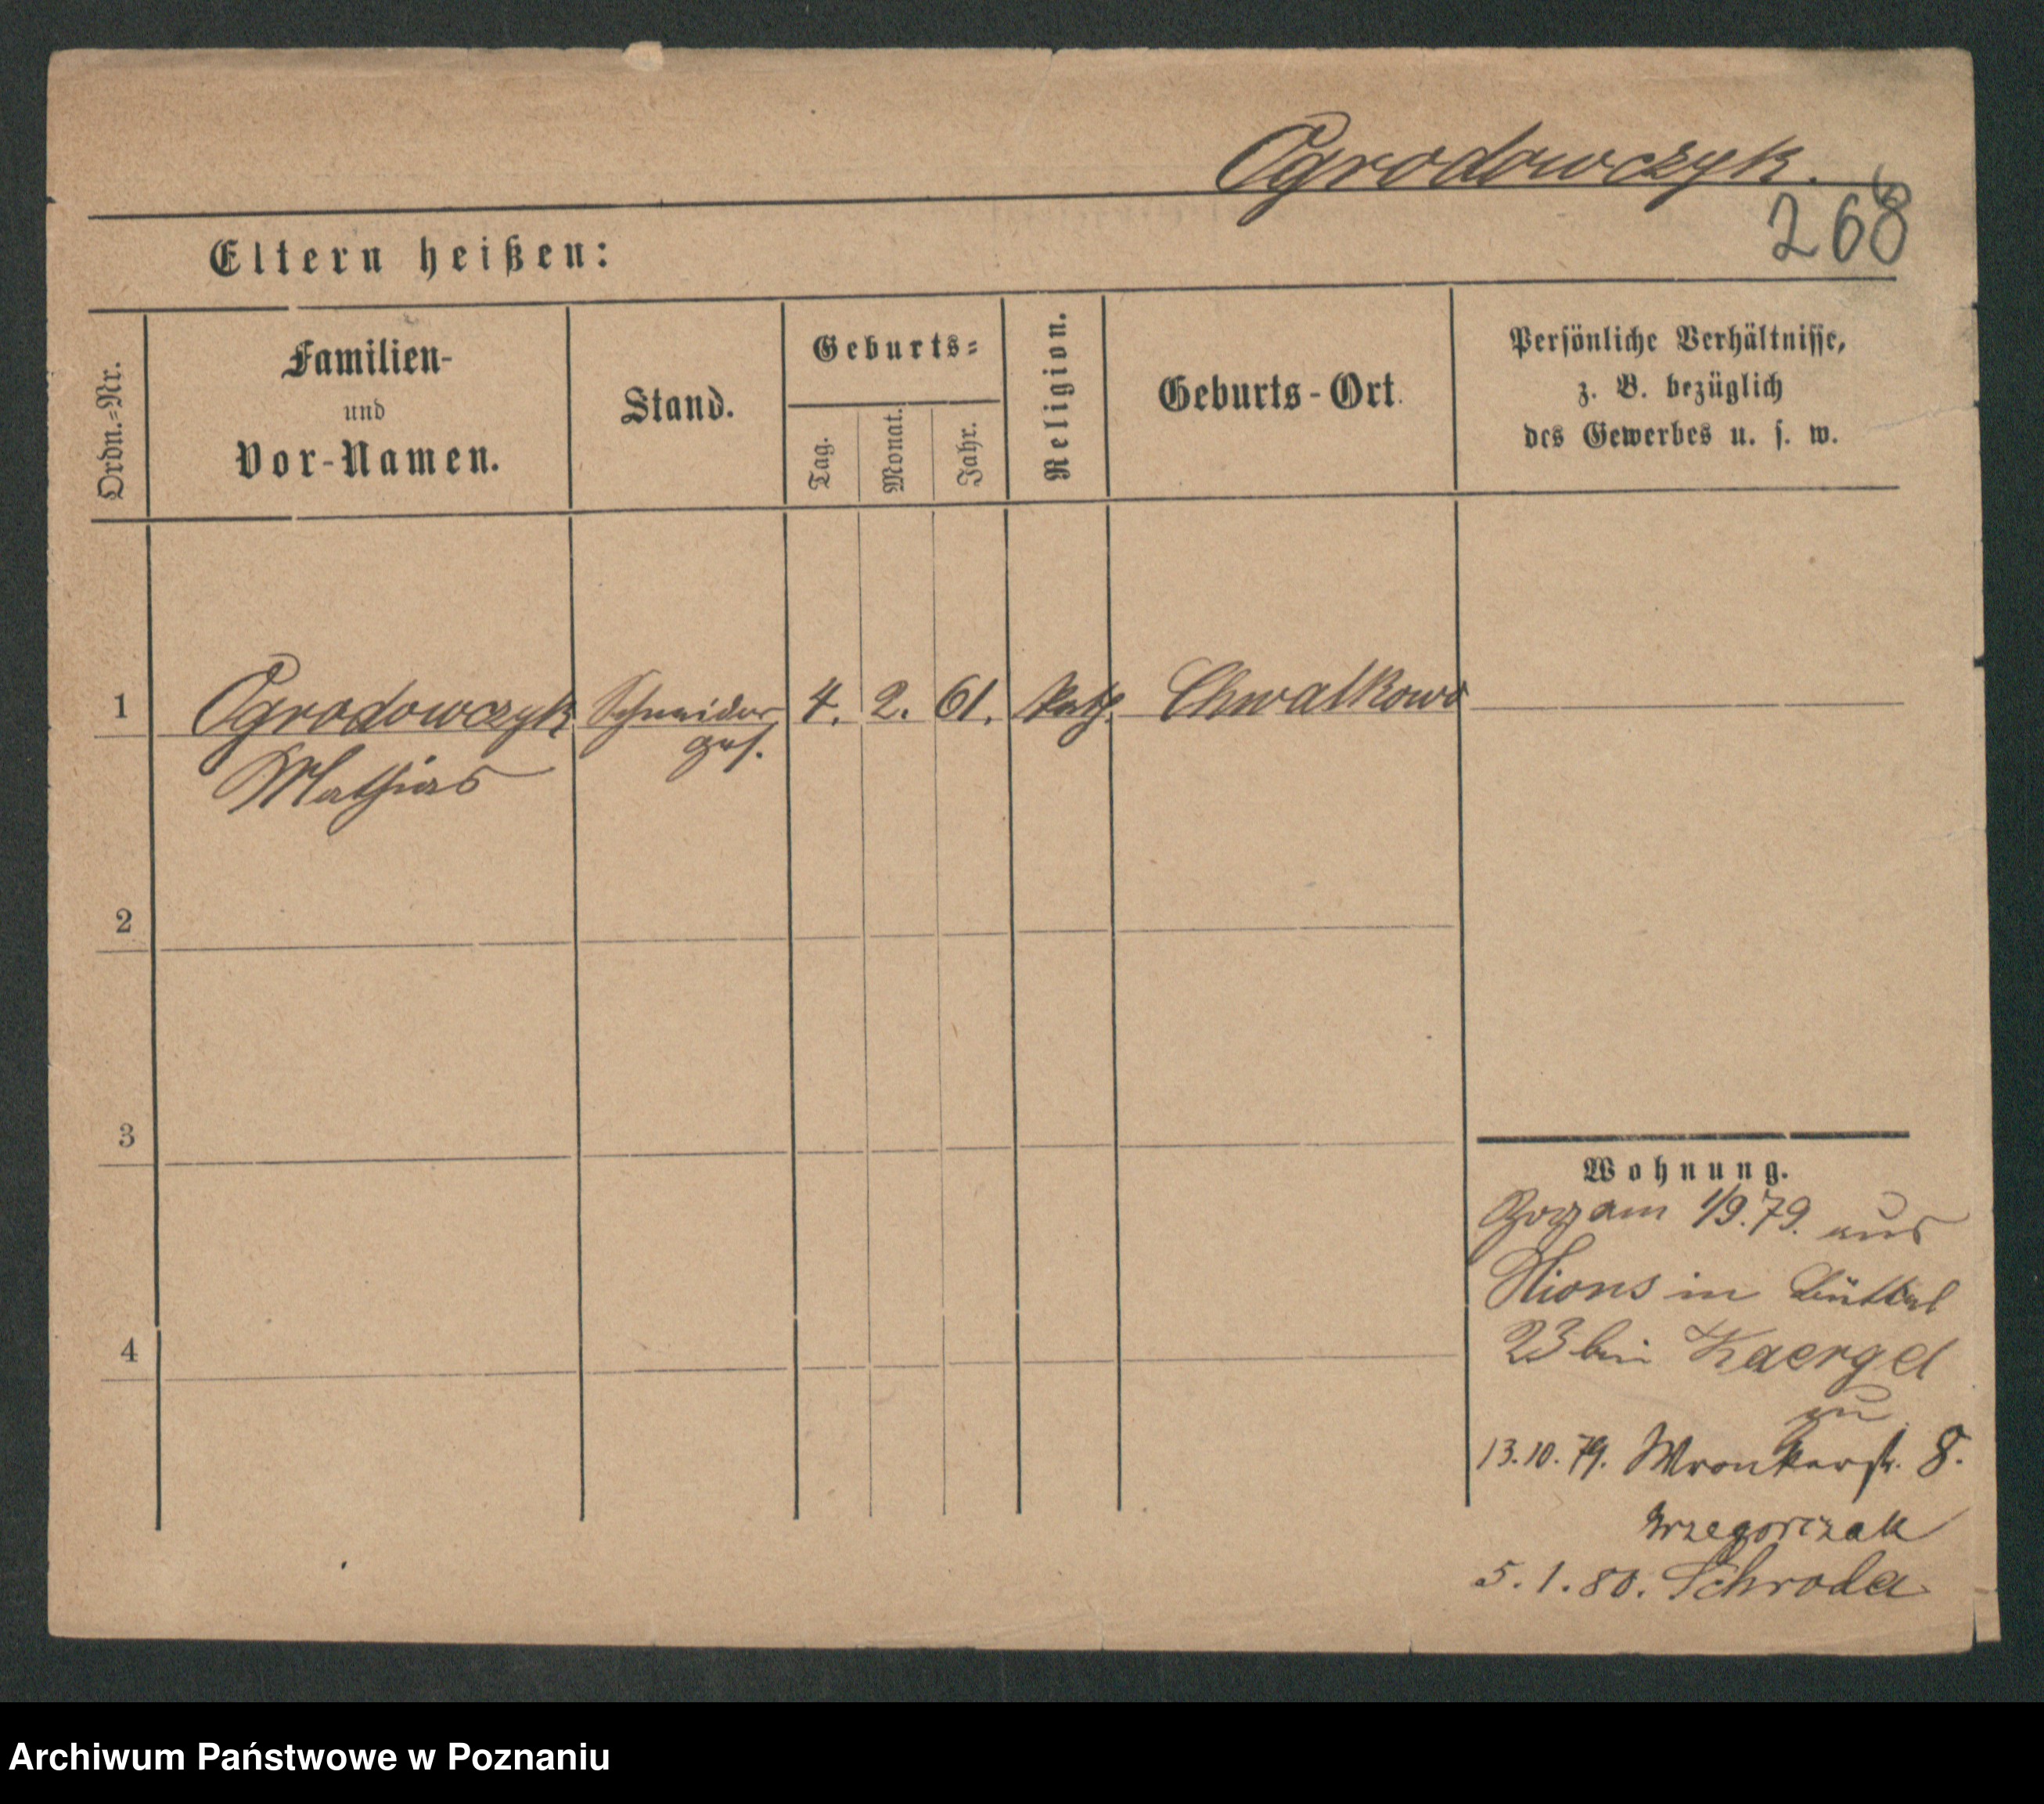 Ogrodowczyk.
268
Eltern heißen:
Ordn.=Nr.
Familien-
und
Vor-Namen.
Stand.
Geburts=
Tag.
Monat.
Jahr.
Religion.
Geburts-Ort.
Persönliche Verhältnisse,
z. B. bezüglich
des Gewerbes u. s. w.
1 Ogrodowczyk Schneider 4. 2. 61. kath. Chwalkowo
ges.
Mathias
2
3
4
Wohnung.
Zog am 1/9.79. aus
Xions in Büttel
23 bei Kaergel
zu
13.10.79. Wronkerstr. 8.
Grzegorczak
5.1.80. Schroda
Archiwum Państwowe w Poznaniu